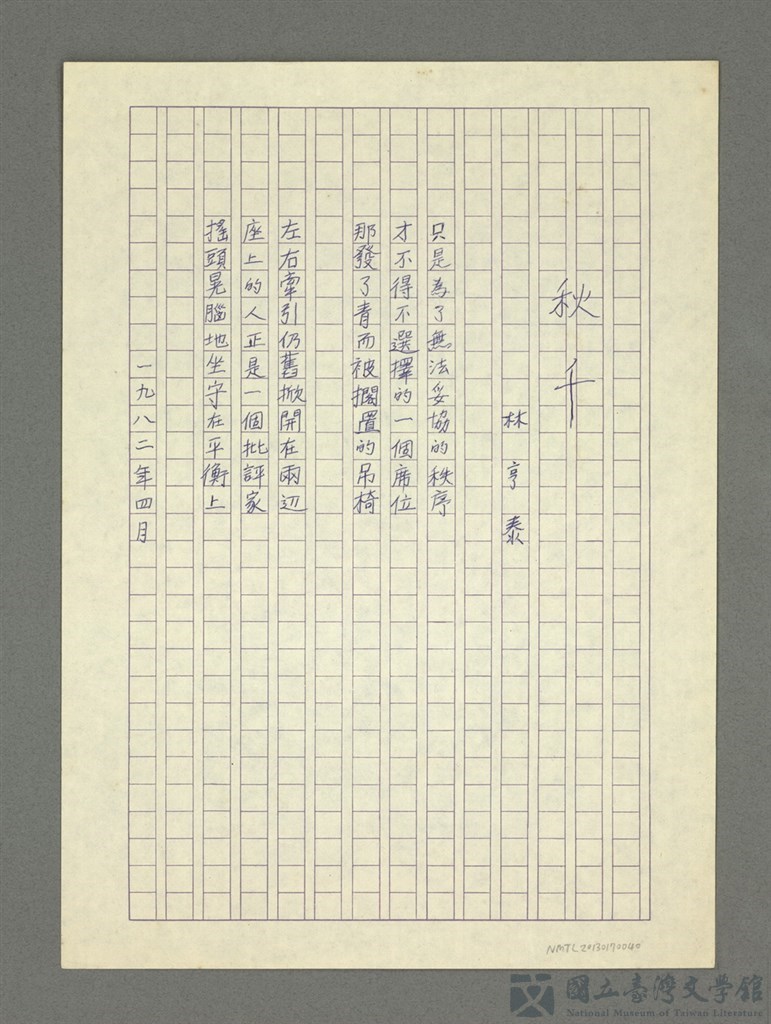 秋千
林亨泰
只是為了無法妥協的秩序
才不得不選擇的一個席位
那發了青而被擱置的吊椅
左右牽引仍舊掀開在兩辺
座上的人正是一個批評家
搖頭晃腦地坐守在平衡上
一九八二年四月
NMTL20130170040
國立臺灣文學館
National Museum of Taiwan Literature